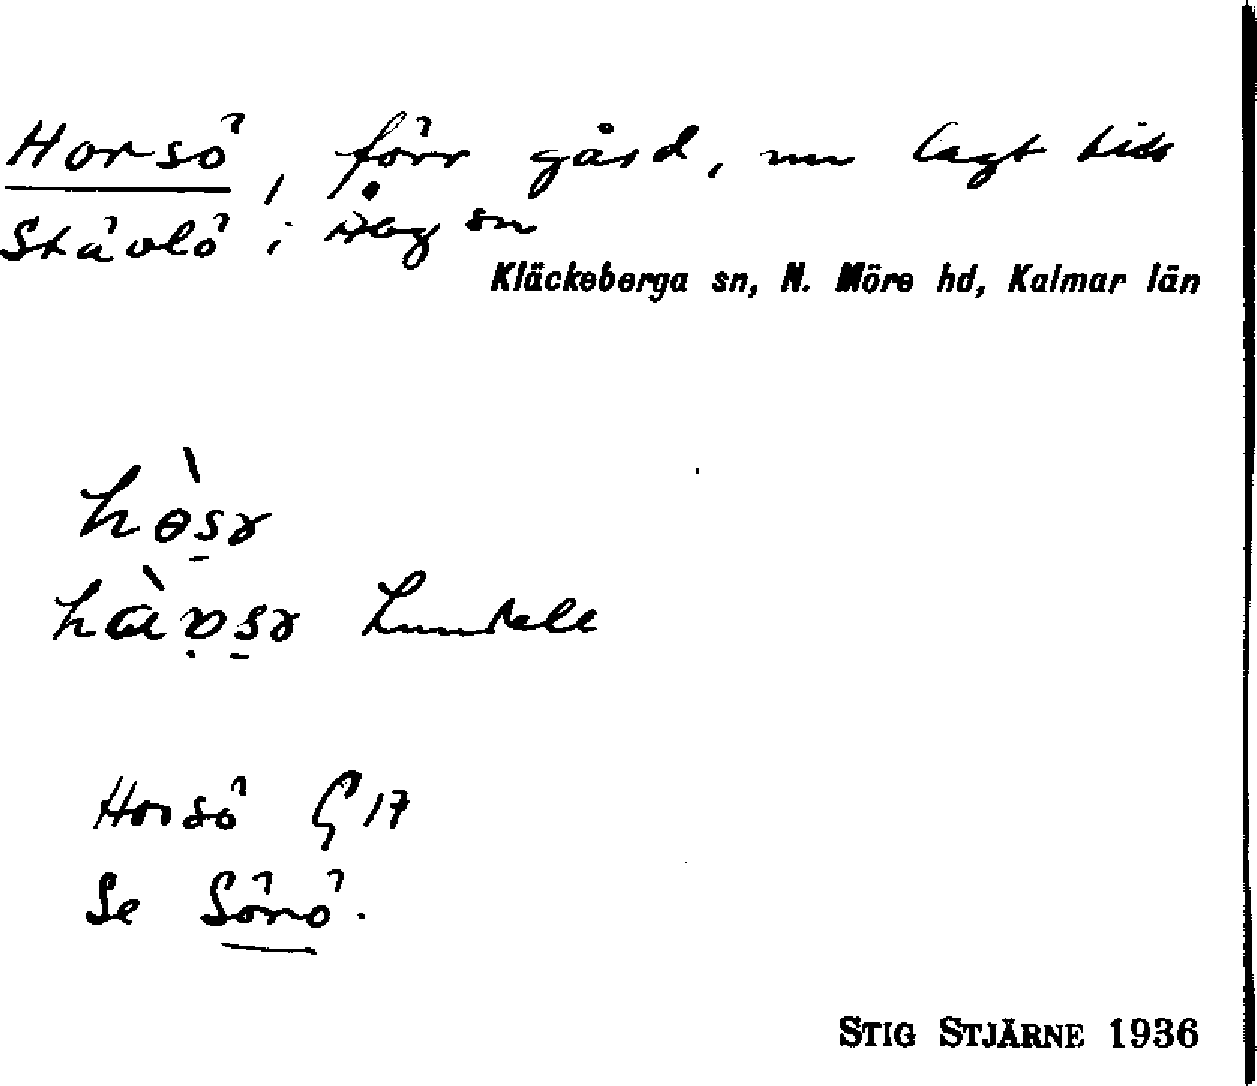 Horsö, förr gård, nu lagt till
Stävlö i Åby sn
Kläckeberga sn, N. Möre hd, Kalmar län
hòsɤ
hàvsɤ Lundell
Horsö G 17
Se Sönö.
STIG STJÄRNE 1936